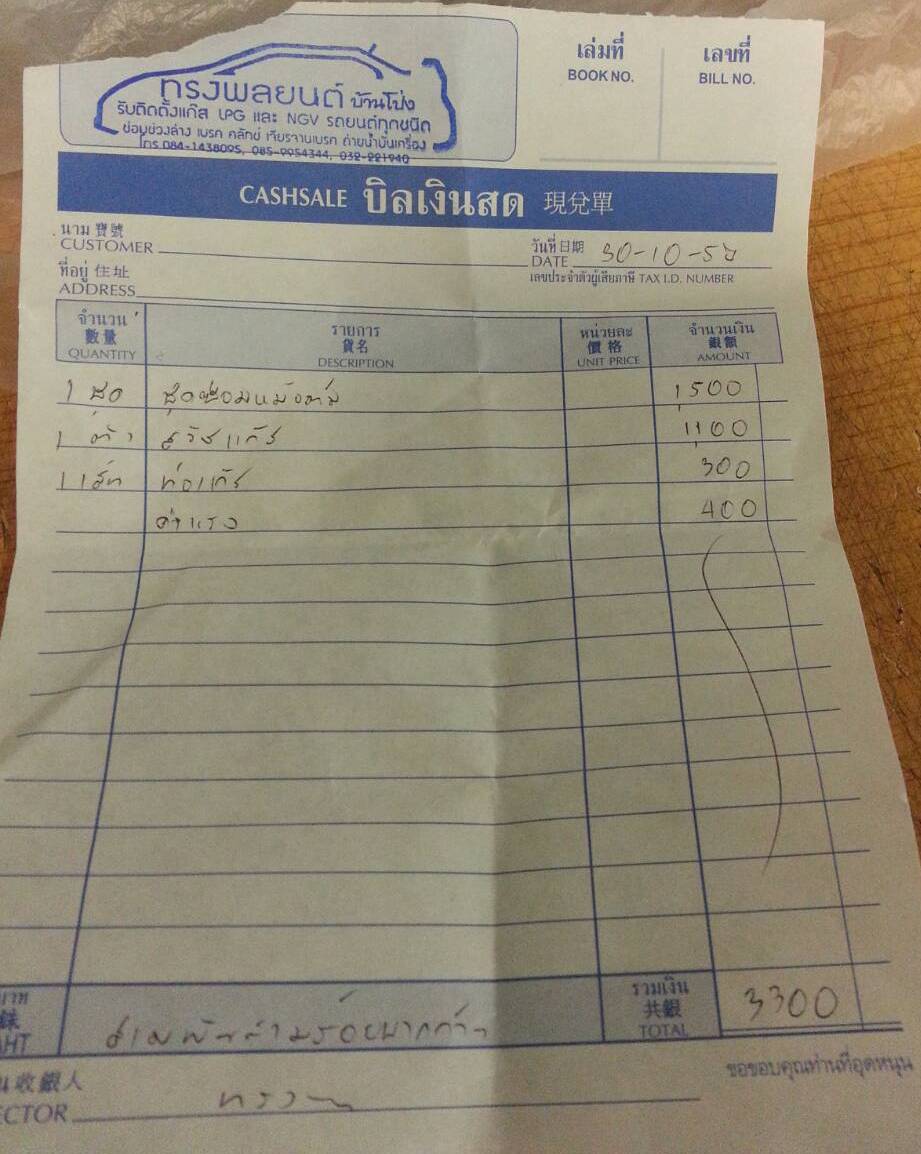 ทรงพลยนต์ บ้านโป่ง
รับติดตั้งแก๊ส LPG และ NGV รถยนต์ทุกชนิด
ซ่อมช่วงล่าง เบรค คลัทช์ เจียรจานเบรค ถ่ายน้ำมันเครื่อง
โทร 084-1438095, 085-9954344, 032-221940
เล่มที่
BOOK NO.
เลขที่
BILL NO.
CASHSALE บิลเงินสด 現兌單
นาม 寶號
CUSTOMER
วันที่ 日期
DATE 30-10-56
ที่อยู่ 住址
ADDRESS
เลขประจำตัวผู้เสียภาษี TAX I.D. NUMBER
จำนวน 數量 QUANTITY
รายการ 貨名 DESCRIPTION
หน่วยละ 價格 UNIT PRICE
จำนวนเงิน 銀額 AMOUNT
1 ชุด ชุดซ่อมหม้อต้ม 1500
1 ตัว สวิชแก๊ส 1100
1 เส้น ท่อแก๊ส 300
ค่าแรง 400
รวมเงิน 共銀 TOTAL 3300
สามพันสามร้อยบาทถ้วน
ขอขอบคุณท่านที่อุดหนุน
收銀人
ECTOR